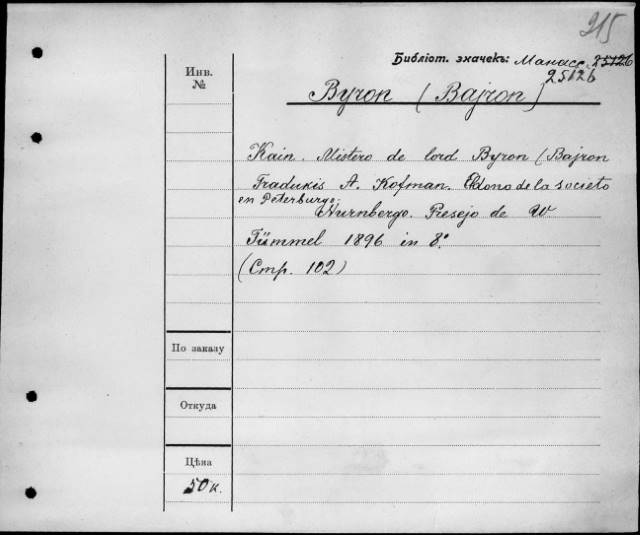 315
Библіот. значекъ: Манасс. 25126
25126
Инв.
№
Byron (Bajron)
Kain. Mistero de lord Byron (Bajron
Tradukis A. Kofman. Eldono de la societo
en Peterburgo;
Nurnbergo. Presejo de W
Tümmel 1896 in 8º
(Стр. 102)
По заказу
Откуда
Цѣна
50 к.